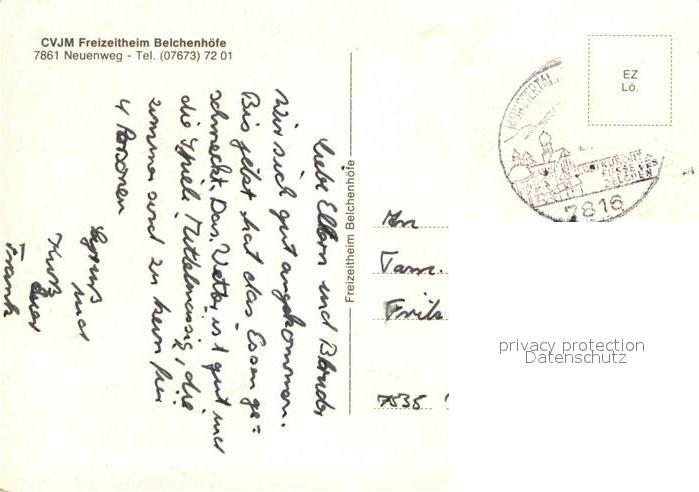 CVJM Freizeitheim Belchenhöfe
7861 Neuenweg - Tel. (07673) 72 01
Liebe Eltern und Bruder
Wir sind gut angekommen.
Bis jetzt hat das Essen ge=
schmeckt. Das Wetter ist gut nur
die Spiele Mittelmässig, die
zimmer sind zu klein für
4 Personen
Gruß
und
Kuß
Euer
Frank
Freizeitheim Belchenhöfe
EZ
Lö.
MÜNSTERTAL
LUFTKURORT
BELCHEN
7816
An
Fam.
7535
privacy protection
Datenschutz